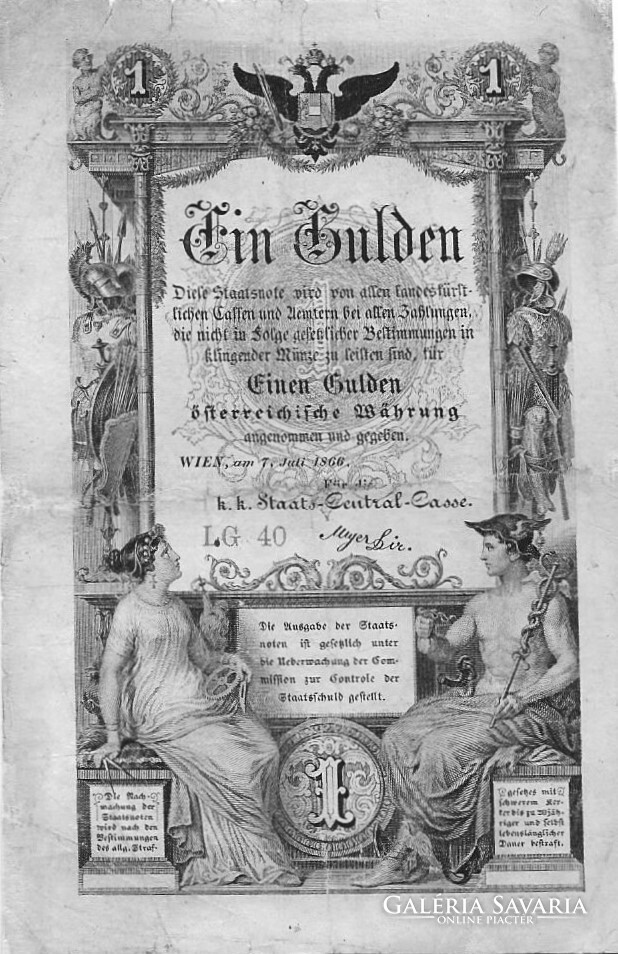 1 1
Ein Gulden
Diese Staatsnote wird von allen landesfürst-
lichen Cassen und Aemtern bei allen Zahlungen,
die nicht in Folge gesetzlicher Bestimmungen in
klingender Münze zu leisten sind, für
Einen Gulden
österreichische Währung
angenommen und gegeben.
WIEN, am 7. Juli 1866.
Für die
k. k. Staats-Central-Casse.
LG 40
Mayer Dir.
Die Ausgabe der Staats-
noten ist gesetzlich unter
die Ueberwachung der Com-
mission zur Controle der
Staatsschuld gestellt.
1
Die Nach-
machung der
Staatsnoten
wird nach den
Bestimmungen
des allg. Straf-
gesetzes mit
schwerem Ker-
ker bis zu 20jäh-
riger und selbst
lebenslänglicher
Dauer bestraft.
GALÉRIA SAVARIA
ONLINE PIACTÉR